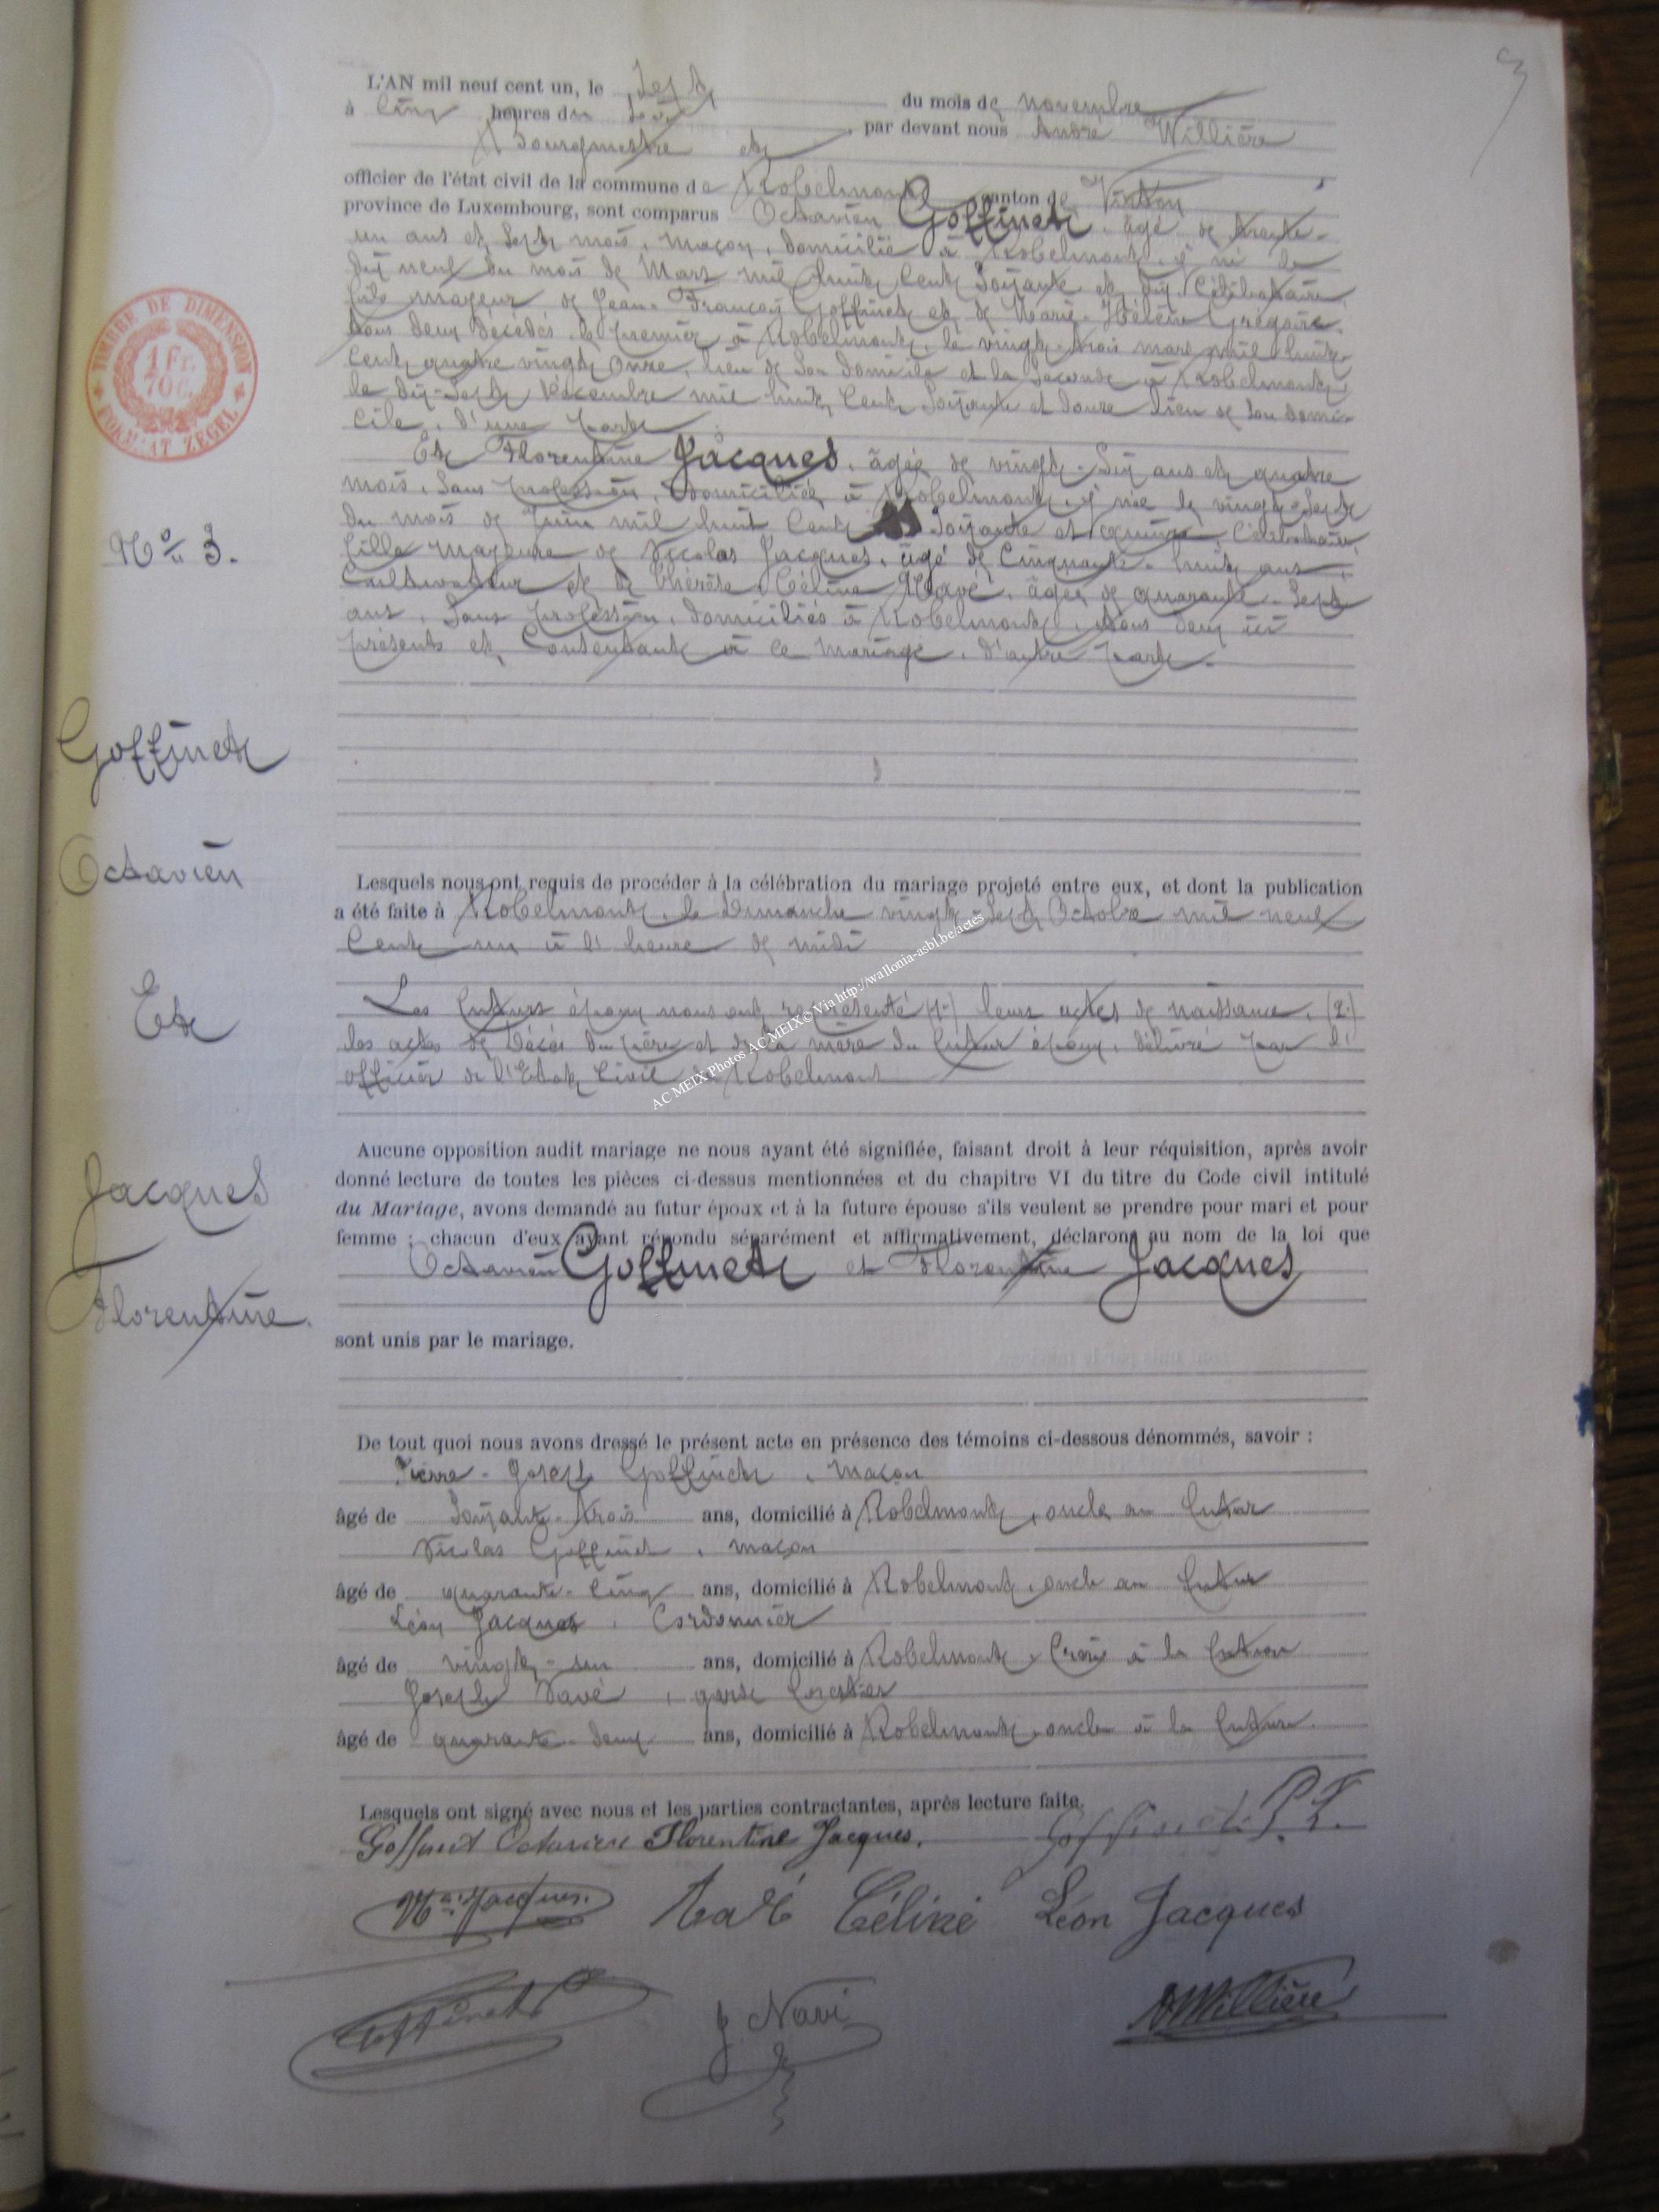 3
L'AN mil neuf cent un, le sept du mois de novembre
à cinq heures du soir par devant nous André Willière
Bourgmestre et
officier de l'état civil de la commune de Robelmont canton de Virton
province de Luxembourg, sont comparus Octavien Goffinet, âgé de trente-
un ans et sept mois, maçon, domicilié à Robelmont, y né le
dix neuf du mois de Mars mil huit cent soixante et dix, Célibataire,
fils majeur de Jean-François Goffinet et de Marie-Hélène Grégoire,
tous deux décédés le premier à Robelmont, le vingt-trois mars mil huit-
cent quatre vingt onze, lieu de son domicile et la seconde à Robelmont
le dix-sept Décembre mil huit cent soixante et douze lieu de son domi-
cile, d'une part
Et Florentine Jacques, âgée de vingt-six ans et quatre
mois, sans profession, domiciliée à Robelmont, y née le vingt-sept
du mois de Juin mil huit cent soixante et quinze, Célibataire,
fille majeure de Nicolas Jacques, âgé de Cinquante-huit ans,
Cultivateur et de Thérèse-Céline Navé, âgée de quarante-sept
ans, sans profession, domiciliés à Robelmont, tous deux ici
présents et Consentant à ce mariage, d'autre part.
TIMBRE DE DIMENSION
1 Fr.
70 C.
FORMAAT ZEGEL
No 3.
Goffinet
Octavien
Et
Jacques
Florentine.
Lesquels nous ont requis de procéder à la célébration du mariage projeté entre eux, et dont la publication
a été faite à Robelmont, le Dimanche vingt-sept Octobre mil neuf
Cent un à l'heure de midi
Les futurs époux nous ont représenté (1°) leurs actes de naissance, (2°)
les actes de Décès du père et de la mère du futur époux, délivré par l'
officier de l'Etat Civil de Robelmont
AC MEIX Photos AC MEIX© Via http://wallonia-asbl.be/actes
Aucune opposition audit mariage ne nous ayant été signifiée, faisant droit à leur réquisition, après avoir
donné lecture de toutes les pièces ci-dessus mentionnées et du chapitre VI du titre du Code civil intitulé
du Mariage, avons demandé au futur époux et à la future épouse s'ils veulent se prendre pour mari et pour
femme ; chacun d'eux ayant répondu séparément et affirmativement, déclarons au nom de la loi que
Octavien Goffinet et Florentine Jacques
sont unis par le mariage.
De tout quoi nous avons dressé le présent acte en présence des témoins ci-dessous dénommés, savoir :
Pierre-Joseph Goffinet, maçon
âgé de soixante-trois ans, domicilié à Robelmont, oncle au futur
Nicolas Goffinet, maçon
âgé de quarante-cinq ans, domicilié à Robelmont, oncle au futur
Léon Jacques, Cordonnier
âgé de vingt-un ans, domicilié à Robelmont, frère à la future
Joseph Navé, garde forestier
âgé de quarante-deux ans, domicilié à Robelmont, oncle à la future.
Lesquels ont signé avec nous et les parties contractantes, après lecture faite.
Goffinet Octavien Florentine Jacques. Goffinet P. J.
Nas Jacques. Navé Céline Léon Jacques
Goffinet J Navé AWillière